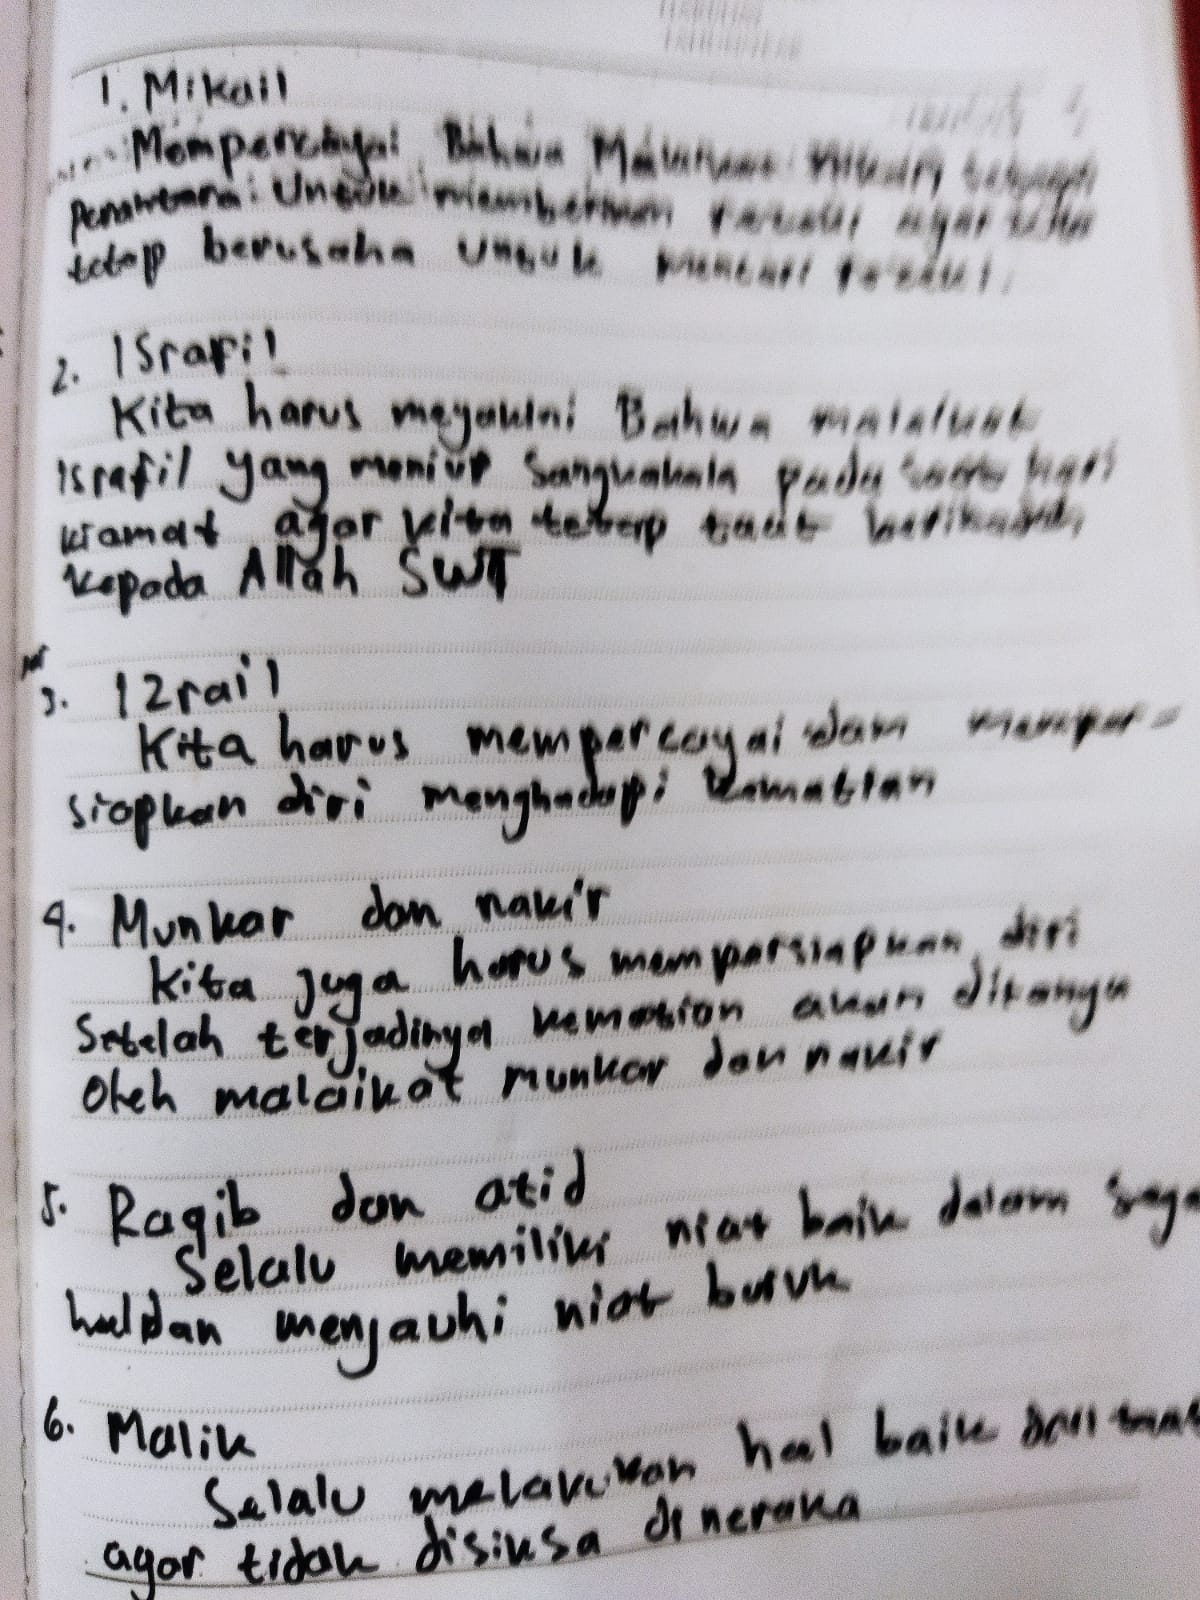 1. Mikail
Mempercayai Bahwa Malaikat Mikail sebagai
Perantara Untuk memberikan rezeki agar kita
tetap berusaha Untuk mencari rezeki.
2. ISrafil
Kita harus meyakini Bahwa malaikat
Israfil yang meniup Sangkakala pada saat hari
kiamat agar kita tetap taat beribadah
kepada Allah SWT
3. IZrail
Kita harus mempercayai dan memper-
siapkan diri menghadapi kematian
4. Munkar dan nakir
Kita juga harus mempersiapkan diri
Setelah terjadinya kematian akan ditanya
Oleh malaikat munkar dan nakir
5. Raqib dan atid
Selalu memiliki niat baik dalam sega
hal dan menjauhi niat buruk
6. Malik
Selalu melakukan hal baik dan taat
agar tidak disiksa di neraka